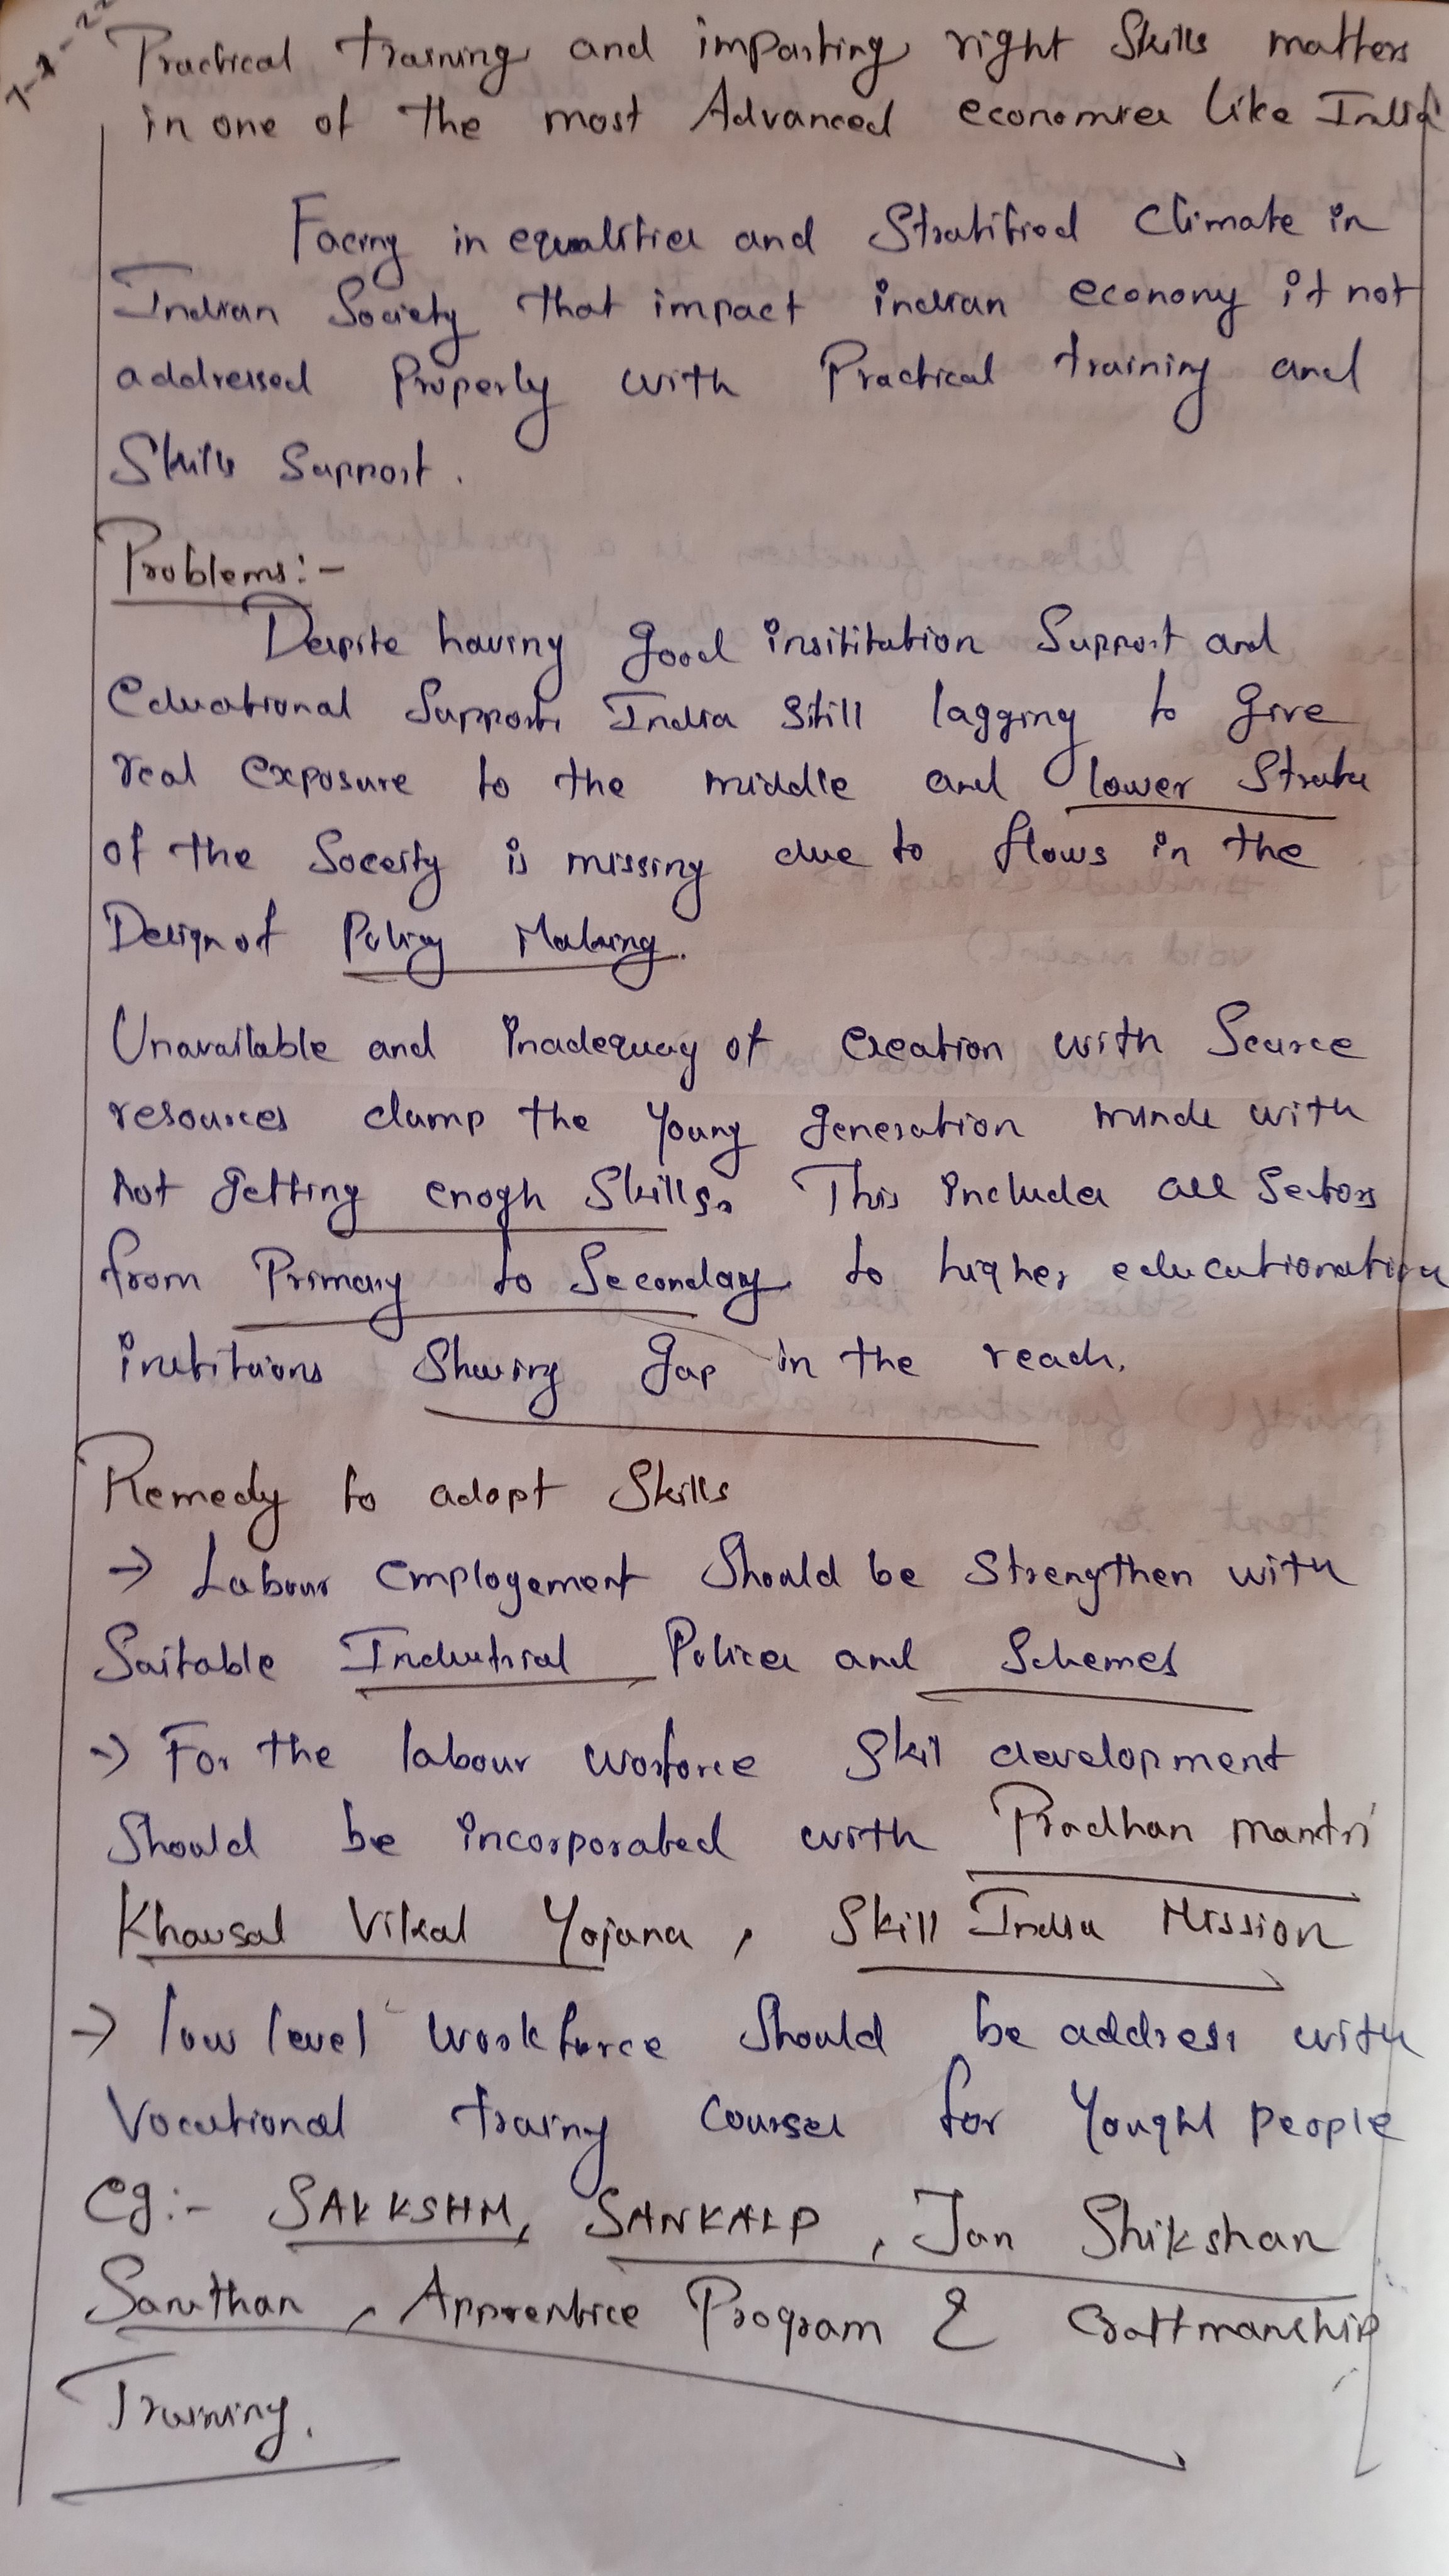 7-2-22
Practical training and imparting right Skills matters
in one of the most Advanced economies like India
Facing in equalities and Stratified Climate in
Indian Society that impact indian economy if not
addressed Properly with Practical training and
Skills Support.
Problems:-
Despite having good insititution Support and
Educational Supports India Still lagging to give
real exposure to the middle and lower Strata
of the Soceity is missing due to flows in the
Design of Policy Making.
Unavailable and inadequacy of creation with Scarce
resources clamp the Young generation minds with
not getting enogh Skills. This includes all Sectors
from Primary to Seconday to higher educationation
institutions Showing gap in the reach.
Remedy to adopt Skills
→ Labour Employement Should be Strengthen with
Suitable Industrial Polices and Schemes
→ For the labour worforce Skil development
Should be incorporated with Pradhan mantri
Khausal Vikas Yojana, Skill India Mission
→ low level workforce Should be address with
Vocational trainng Courses for people
eg:- SAKKSHM, SANKALP, Jan Shikshan
Sansthan, Apprentice Program & Craftmanship
Training.